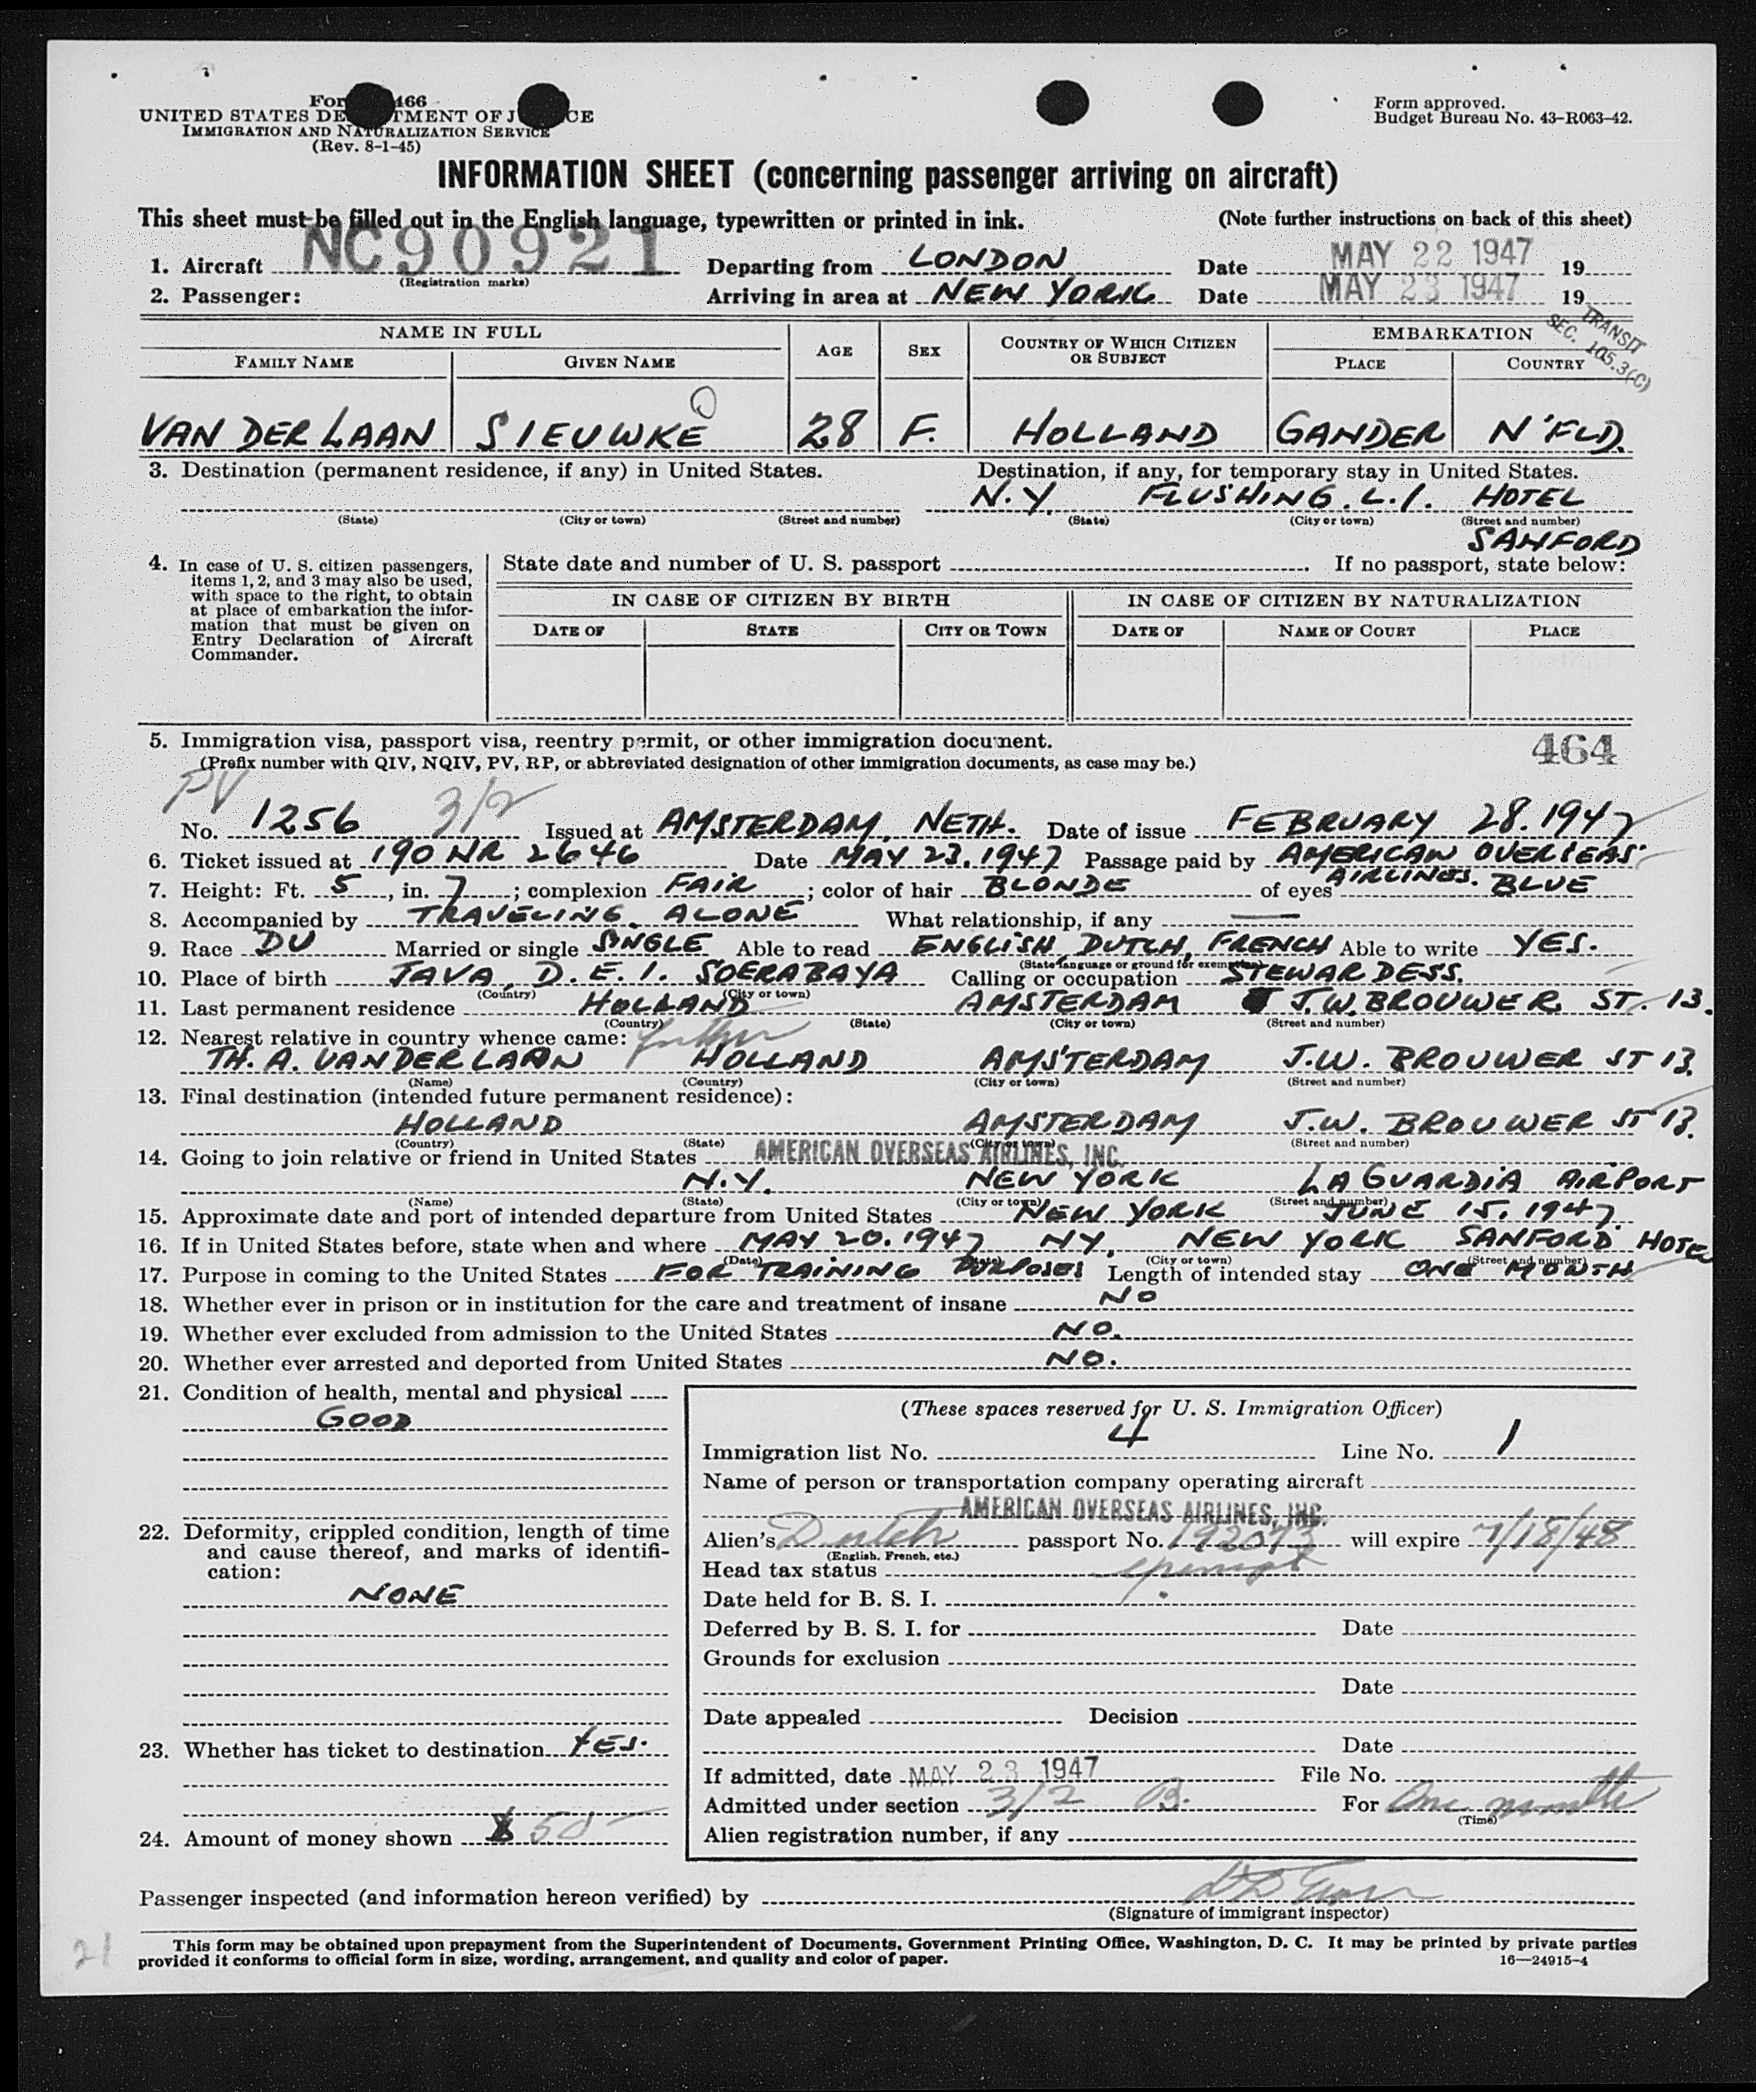 Form 466
UNITED STATES DEPARTMENT OF JUSTICE
IMMIGRATION AND NATURALIZATION SERVICE
(Rev. 8-1-45)
Form approved.
Budget Bureau No. 43-R063-42.
INFORMATION SHEET (concerning passenger arriving on aircraft)
This sheet must be filled out in the English language, typewritten or printed in ink. (Note further instructions on back of this sheet)
1. Aircraft NC90921 (Registration marks) Departing from LONDON Date MAY 22 1947 19
2. Passenger: Arriving in area at NEW YORK Date MAY 23 1947 19
TRANSIT
SEC. 105.3(C)
NAME IN FULL AGE SEX COUNTRY OF WHICH CITIZEN OR SUBJECT EMBARKATION
FAMILY NAME GIVEN NAME PLACE COUNTRY
VAN DER LAAN SIEUWKE 28 F. HOLLAND GANDER N'FLD.
3. Destination (permanent residence, if any) in United States. Destination, if any, for temporary stay in United States.
N.Y. FLUSHING. L.I. HOTEL
(State) (City or town) (Street and number) (State) (City or town) (Street and number)
SANFORD
4. In case of U. S. citizen passengers, items 1, 2, and 3 may also be used, with space to the right, to obtain at place of embarkation the information that must be given on Entry Declaration of Aircraft Commander.
State date and number of U. S. passport . If no passport, state below:
IN CASE OF CITIZEN BY BIRTH IN CASE OF CITIZEN BY NATURALIZATION
DATE OF STATE CITY OR TOWN DATE OF NAME OF COURT PLACE
5. Immigration visa, passport visa, reentry permit, or other immigration document. 464
(Prefix number with QIV, NQIV, PV, RP, or abbreviated designation of other immigration documents, as case may be.)
PV
No. 1256 3/2 Issued at AMSTERDAM, NETH. Date of issue FEBRUARY 28. 1947
6. Ticket issued at 190 NR 2646 Date MAY 23. 1947 Passage paid by AMERICAN OVERSEAS
AIRLINES.
7. Height: Ft. 5, in. 7; complexion FAIR; color of hair BLONDE of eyes BLUE
8. Accompanied by TRAVELING ALONE What relationship, if any —
9. Race DU Married or single SINGLE Able to read ENGLISH, DUTCH, FRENCH Able to write YES.
(State language or ground for exemption)
10. Place of birth JAVA, D.E.I. SOERABAYA Calling or occupation STEWARDESS.
(Country) (City or town)
11. Last permanent residence HOLLAND AMSTERDAM J.W. BROUWER ST. 13.
(Country) (State) (City or town) (Street and number)
12. Nearest relative in country whence came: father
TH. A. VAN DER LAAN HOLLAND AMSTERDAM J.W. BROUWER ST 13.
(Name) (Country) (City or town) (Street and number)
13. Final destination (intended future permanent residence):
HOLLAND AMSTERDAM J.W. BROUWER ST 13.
(Country) (State) (City or town) (Street and number)
14. Going to join relative or friend in United States AMERICAN OVERSEAS AIRLINES, INC.
N.Y. NEW YORK LA GUARDIA AIRPORT
(Name) (State) (City or town) (Street and number)
15. Approximate date and port of intended departure from United States NEW YORK JUNE 15. 1947.
16. If in United States before, state when and where MAY 20. 1947 NY, NEW YORK SANFORD HOTEL
(Date) (State) (City or town) (Street and number)
17. Purpose in coming to the United States FOR TRAINING PURPOSES Length of intended stay ONE MONTH
18. Whether ever in prison or in institution for the care and treatment of insane NO
19. Whether ever excluded from admission to the United States NO.
20. Whether ever arrested and deported from United States NO.
21. Condition of health, mental and physical
GOOD
22. Deformity, crippled condition, length of time and cause thereof, and marks of identification:
NONE
23. Whether has ticket to destination YES.
24. Amount of money shown $ 50
(These spaces reserved for U. S. Immigration Officer)
Immigration list No. 4 Line No. 1
Name of person or transportation company operating aircraft
AMERICAN OVERSEAS AIRLINES, INC.
Alien's Dutch passport No. 192073 will expire 7/18/48
(English, French, etc.)
Head tax status exempt
Date held for B. S. I.
Deferred by B. S. I. for Date
Grounds for exclusion
Date
Date appealed Decision
Date
If admitted, date MAY 23 1947 File No.
Admitted under section 3/2 B. For One month
(Time)
Alien registration number, if any
Passenger inspected (and information hereon verified) by
(Signature of immigrant inspector)
21
This form may be obtained upon prepayment from the Superintendent of Documents, Government Printing Office, Washington, D. C. It may be printed by private parties
provided it conforms to official form in size, wording, arrangement, and quality and color of paper. 16—24915-4